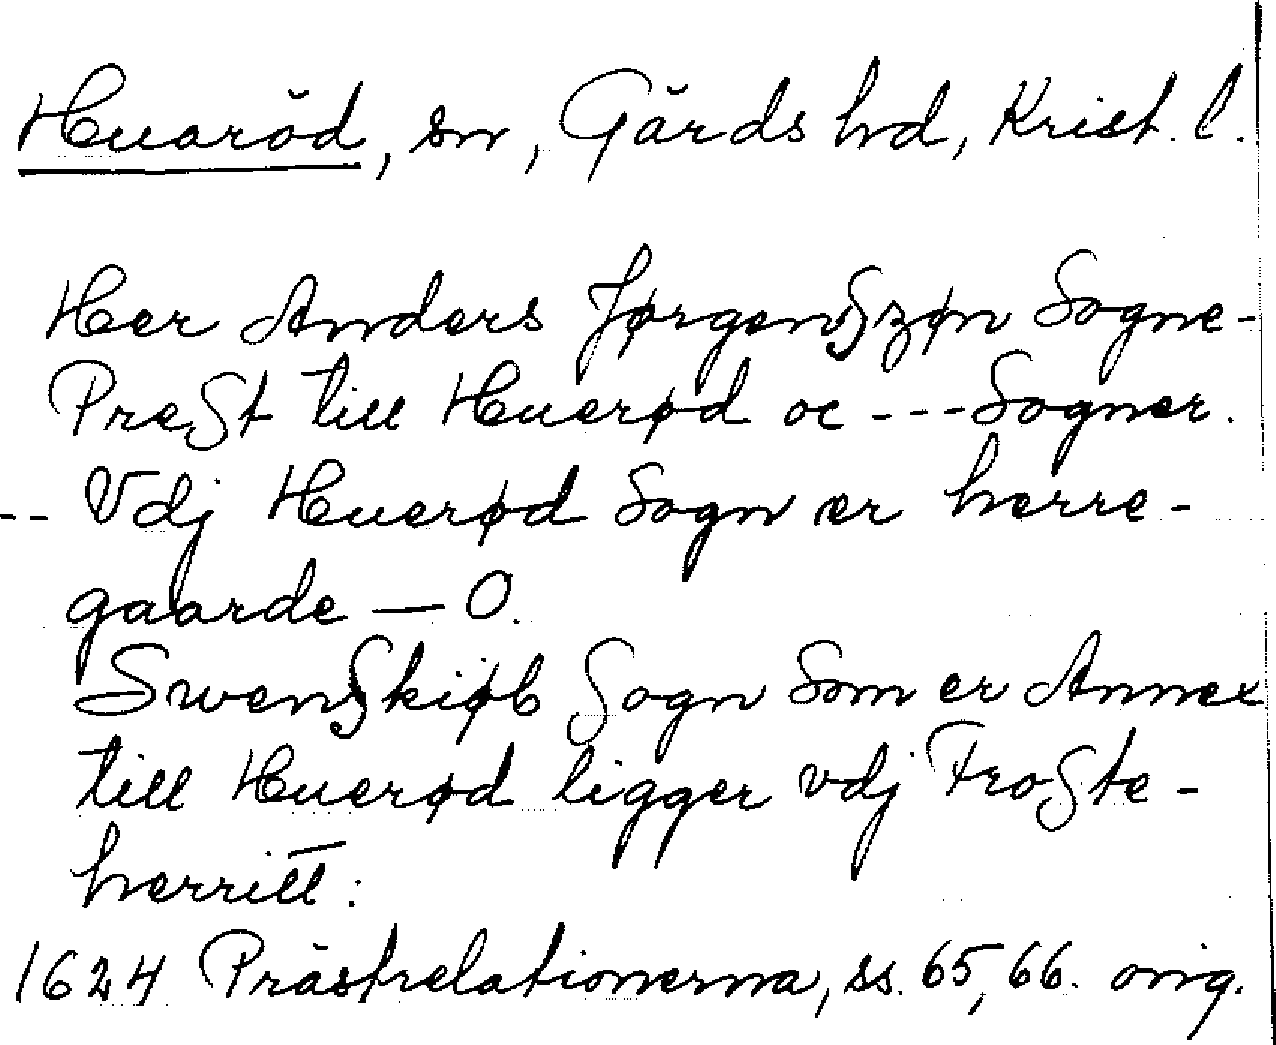 Huaröd, sn, Gärds hd, Krist. l.
Her Anders Jørgenszøn Sogne-
Prest till Huerød oc --- Sogner.
-- Vdj Huerød Sogn er herre-
gaarde — O.
Swenskiøb Sogn Som er Annex
till Huerød ligger vdj Froste-
herritt:
1624 Prästrelationerna, ss. 65, 66. orig.